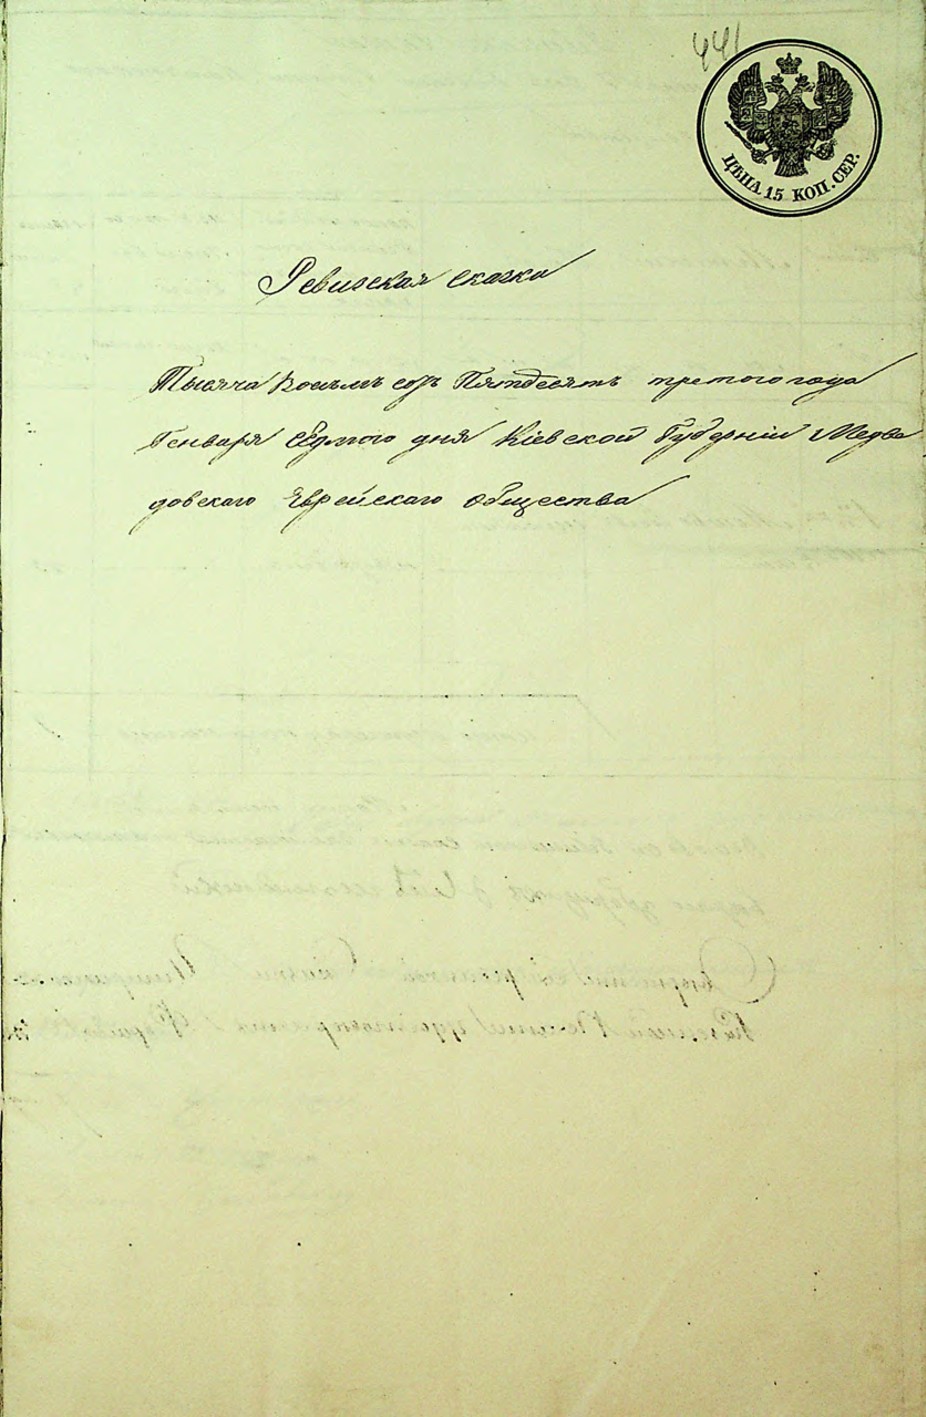 441
ЦѢНА 15 КОП. СЕР.
Ревизская сказка
Тысяча Восемъ сотъ Пятдесятъ третого года
Генваря Седмого дня Кіевской Губерніи Медве
довскаго Еврейскаго общества